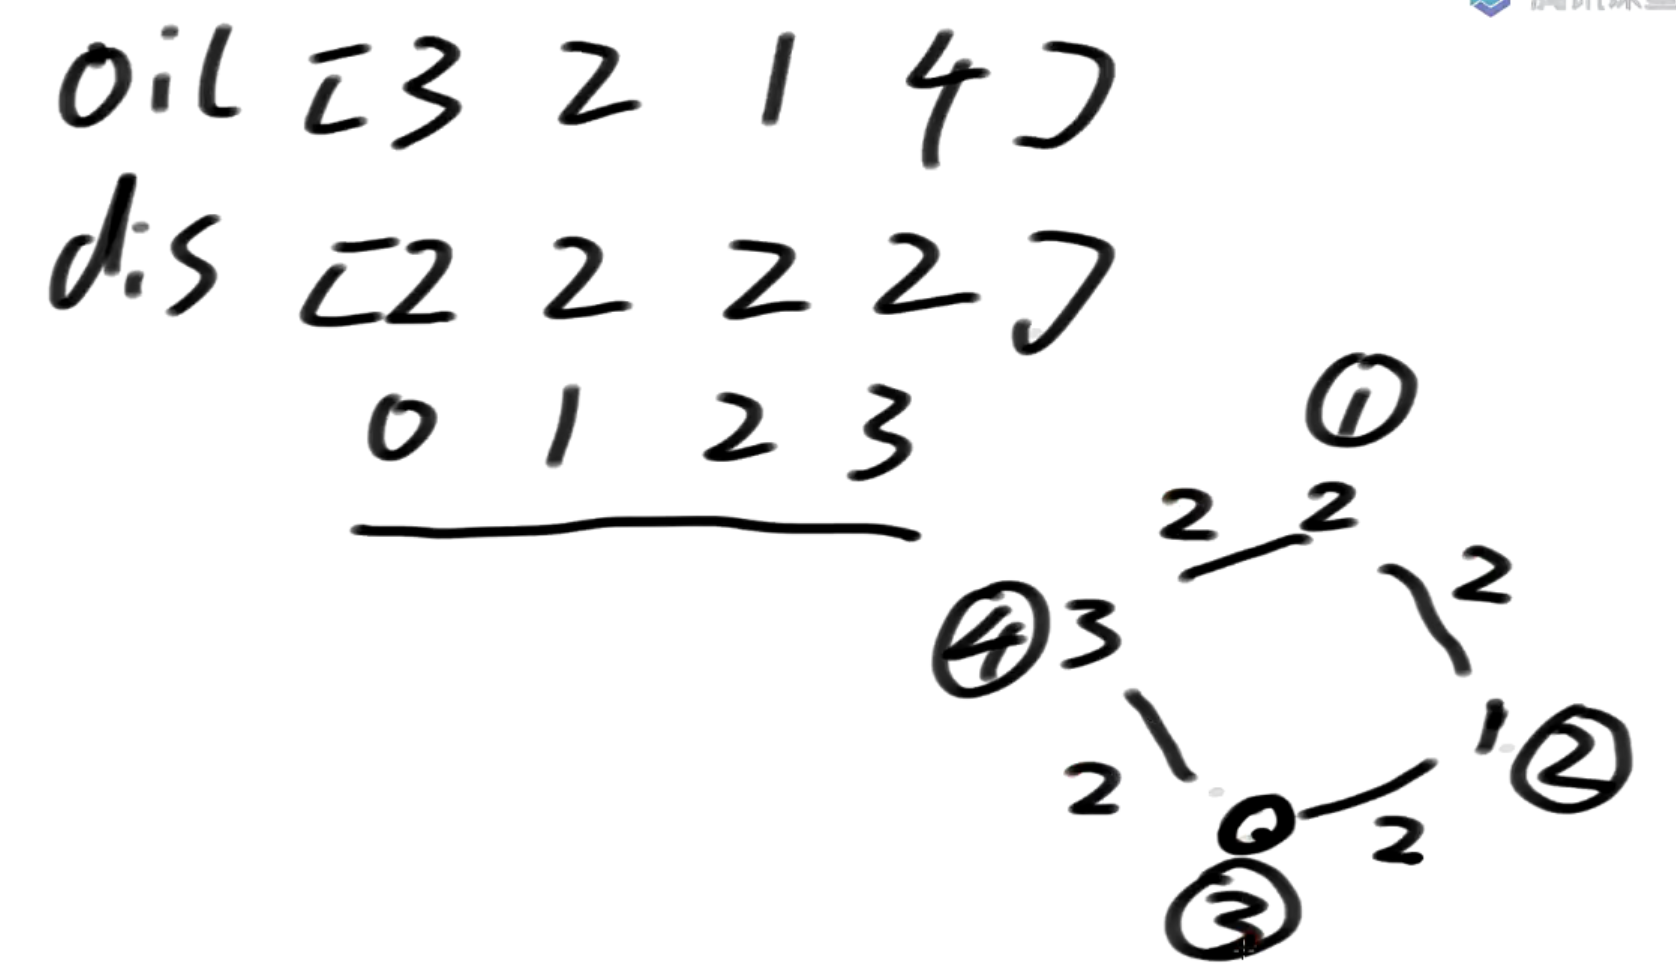 oil [3 2 1 4]
dis [2 2 2 2]
0 1 2 3
①
2 2
2
④ 3
1 ②
2
0
2
③